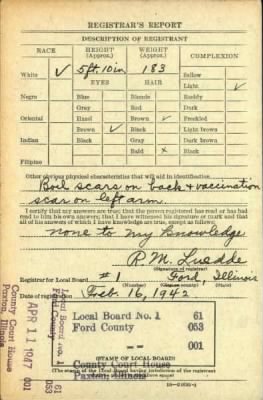 REGISTRAR'S REPORT
DESCRIPTION OF REGISTRANT
RACE HEIGHT (Approx.) WEIGHT (Approx.) COMPLEXION
White ✓ 5 ft. 10 in 183 Sallow
EYES HAIR Light ✓
Negro Blue Blonde Ruddy
Gray Red Dark
Oriental Hazel Brown ✓ Freckled
Brown ✓ Black Light brown
Indian Black Gray Dark brown
Bald x Black
Filipino
Other obvious physical characteristics that will aid in identification
Boil scars on back & vaccination
scar on left arm.
I certify that my answers are true; that the person registered has read or has had
read to him his own answers; that I have witnessed his signature or mark and that
all of his answers of which I have knowledge are true, except as follows:
none to my knowledge
R. M. Luedde
(Signature of registrar)
Registrar for Local Board #1 Ford, Illinois
Date of registration Feb. 16, 1942
Local Board No. 1 61
Ford County 053
-- 001
County Court House
Paxton, Illinois
(STAMP OF LOCAL BOARD)
(The stamp of the Local Board having jurisdiction of the registrant
County Court House
Paxton, Illinois
APR 11 1947
001
Local Board No. 1
61
053